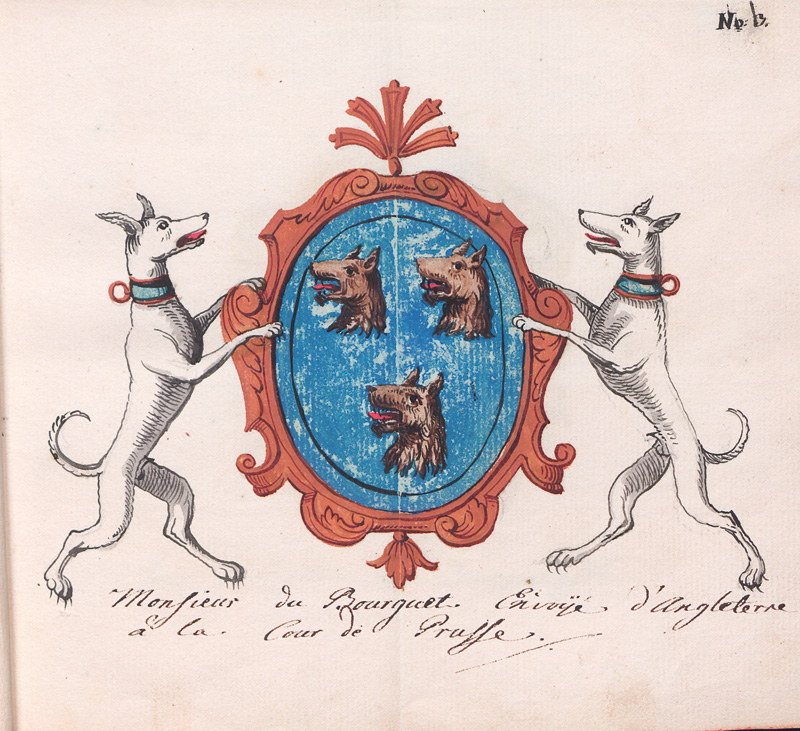 No: 13.
Monsieur du Bourguet. Envoÿé. d'Angleterre
à la. Cour de Prusse.